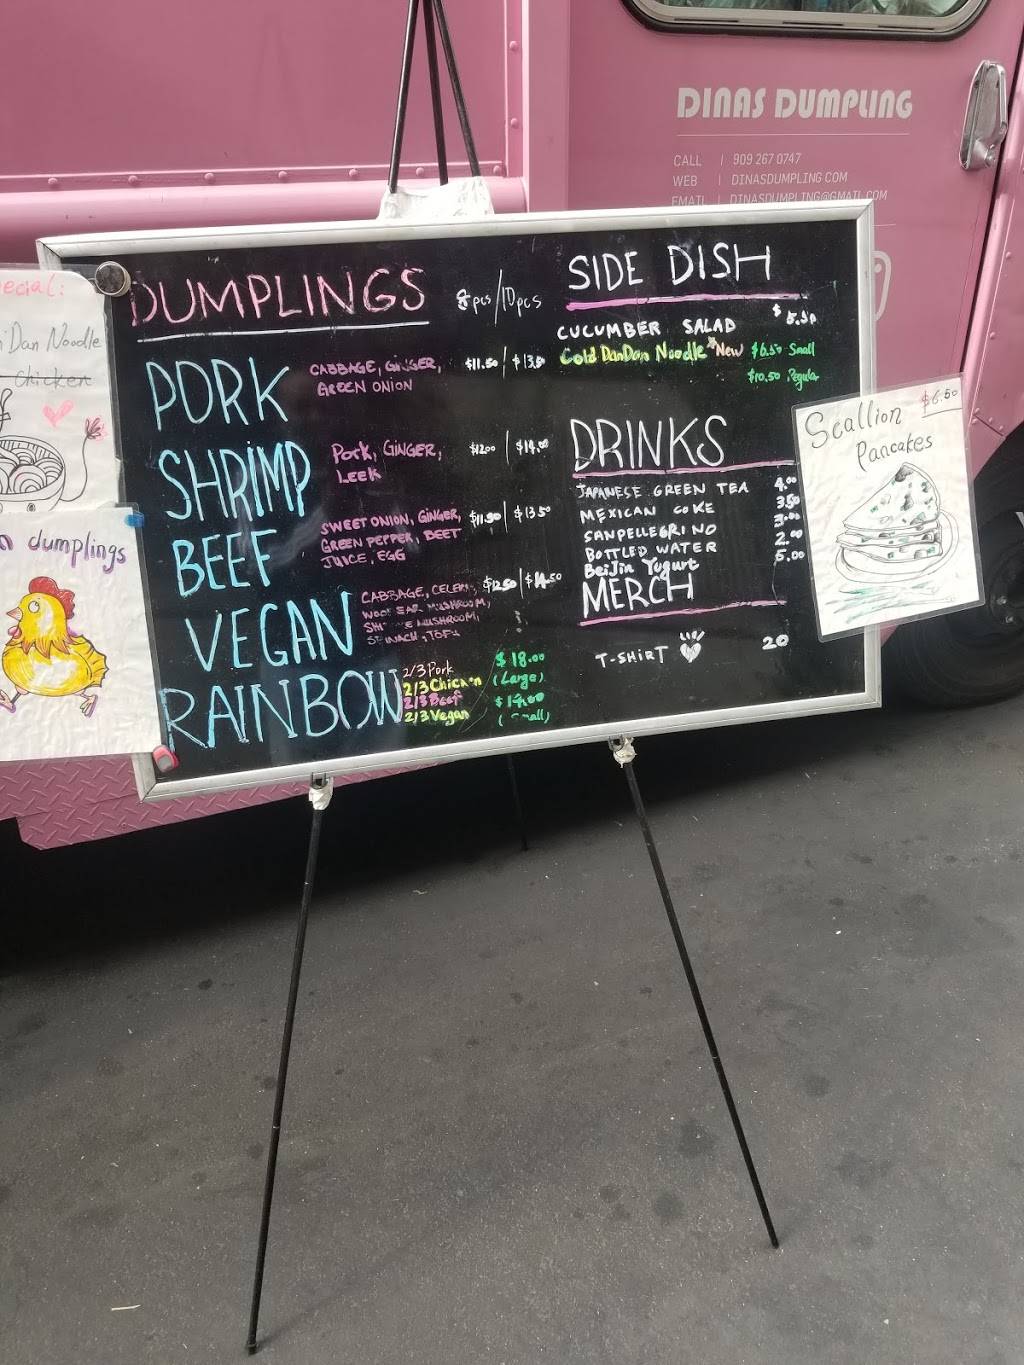 DINAS DUMPLING
CALL | 909 267 0747
WEB | DINASDUMPLING.COM
EMAIL | DINASDUMPLING@GMAIL.COM
DUMPLINGS 8pcs/10pcs
PORK CABBAGE, GINGER, $11.50 / $13.50
GREEN ONION
SHRIMP Pork, GINGER, $12.00 / $14.00
LEEK
BEEF SWEET ONION, GINGER, $11.50 / $13.50
GREEN PEPPER, BEET
JUICE, EGG
VEGAN CABBAGE, CELERY, $12.50 / $14.50
WOOD EAR MUSHROOM,
MUSHROOM,
SPINACH, TOFU
RAINBOW 2/3 Pork $18.00
2/3 Chicken (Large)
2/3 Beef
2/3 Vegan (Small)
SIDE DISH
CUCUMBER SALAD $5.50
Cold DanDan Noodle *New $6.50 Small
$10.50 Regular
DRINKS
JAPANESE GREEN TEA 4.00
MEXICAN COKE 3.50
SANPELLEGRINO 3.00
BOTTLED WATER 2.00
BeiJin Yugurt 5.00
MERCH
T-SHIRT 20
Scallion $6.50
Pancakes
ecial:
Dan Noodle
chicken
n dumplings